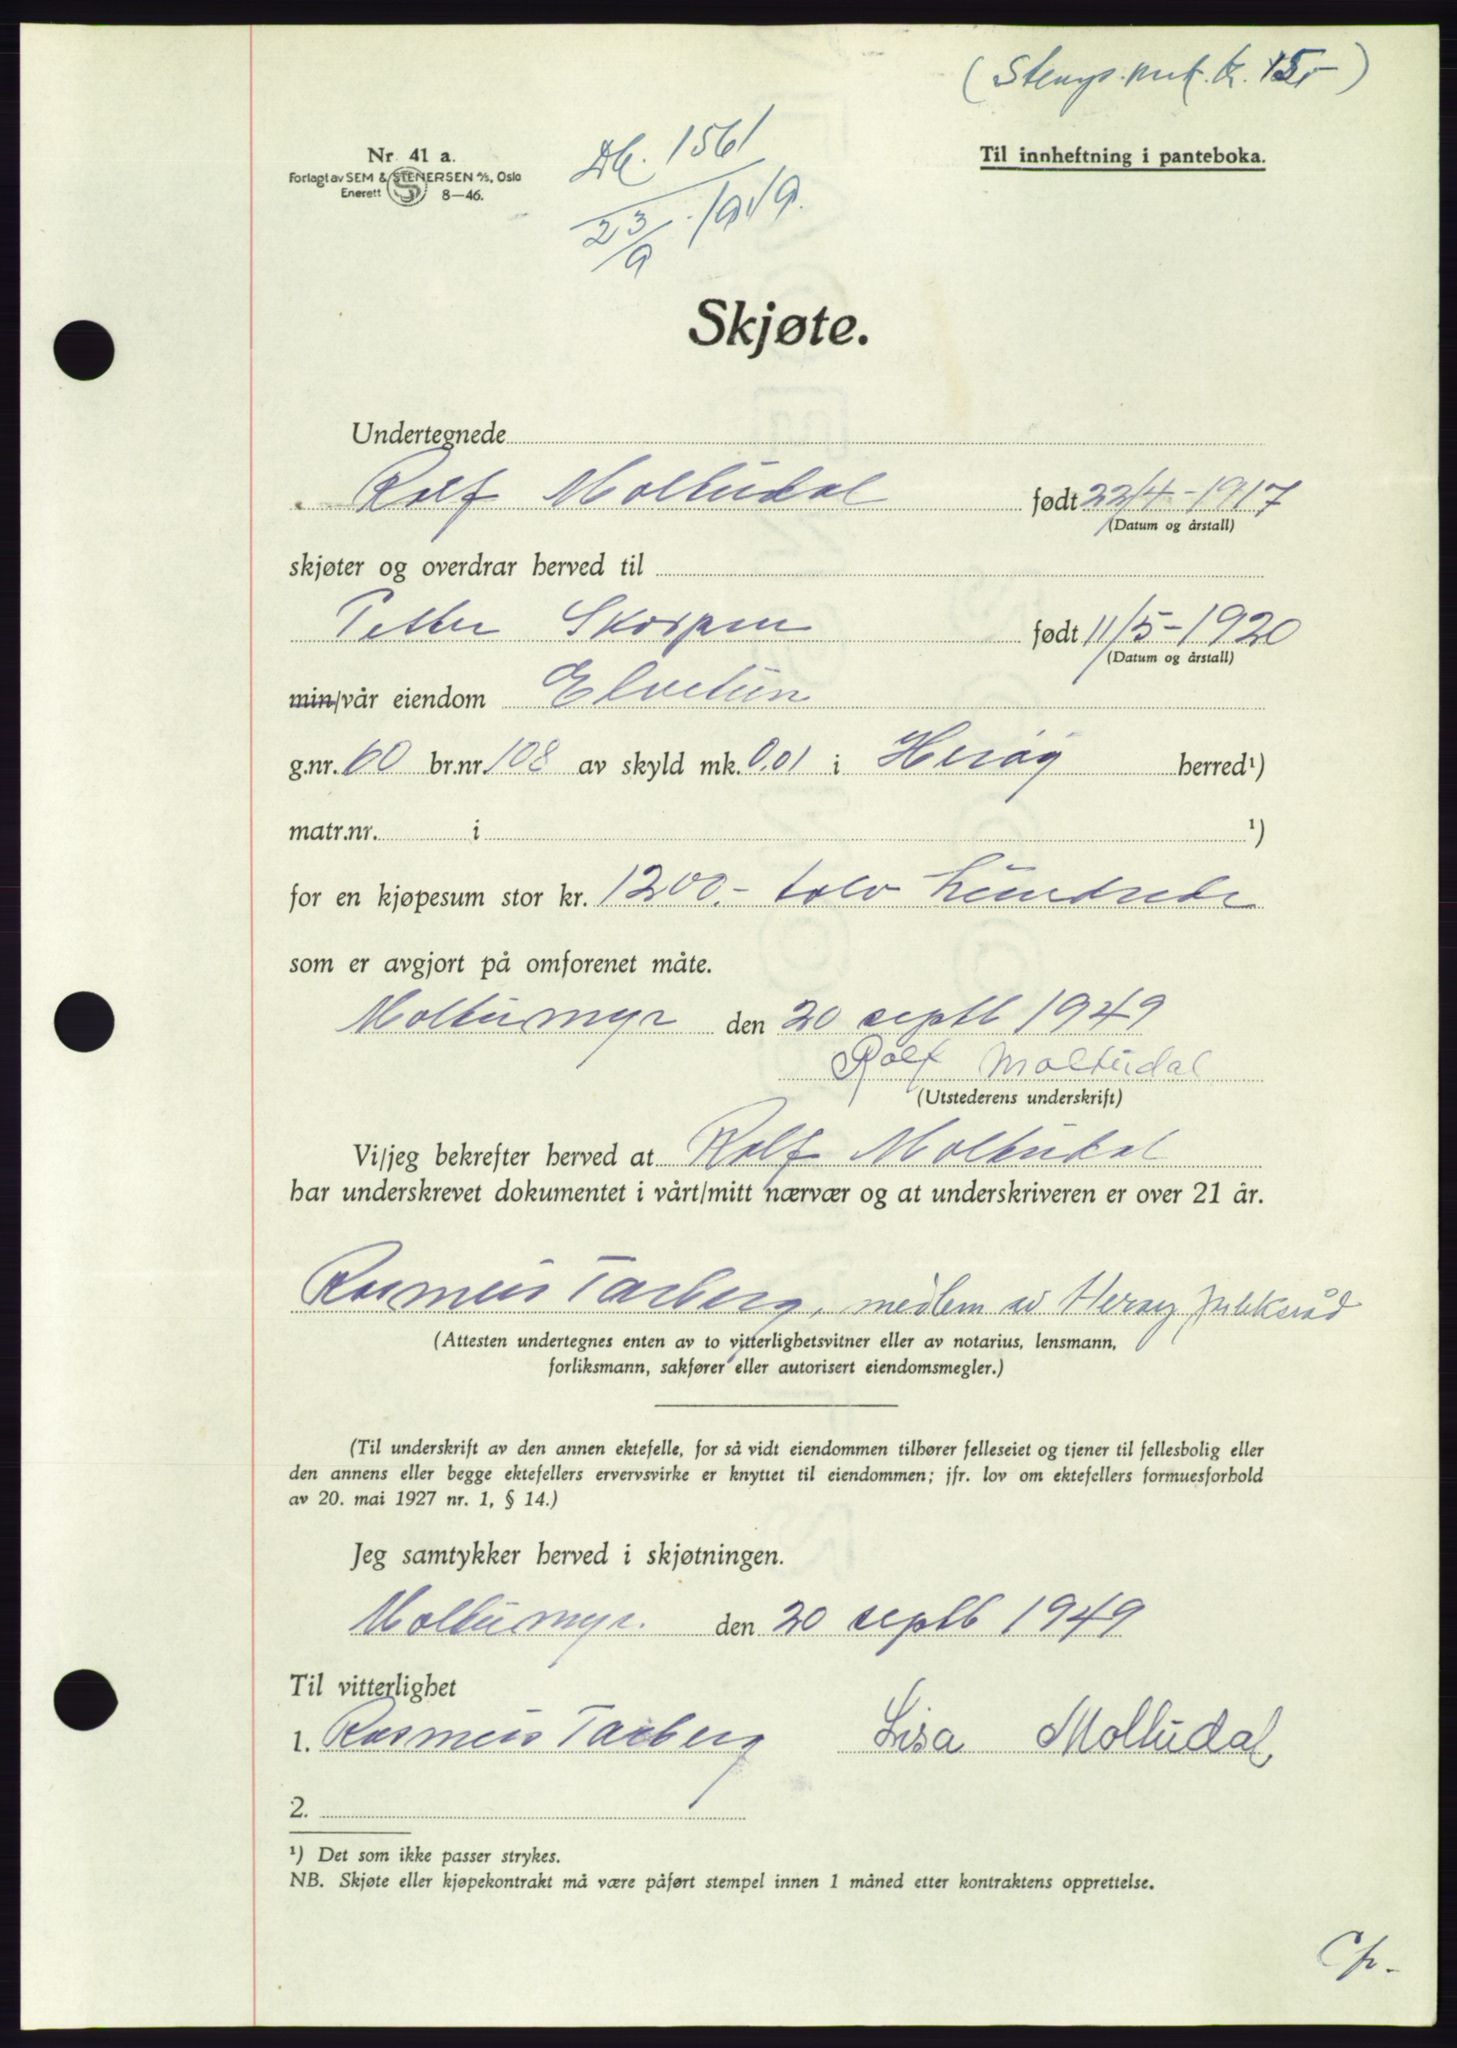 (Stemp. merk. kr. 15,-)
Nr. 41 a.
Forlagt av SEM & STENERSEN A/S, Oslo
Enerett 8—46.
Db. 1561
23/9 - 1949.
Til innheftning i panteboka.
Skjøte.
Undertegnede
Rolf Moltudal født 22/4-1917
(Datum og årstall)
skjøter og overdrar herved til
Petter Skorpen født 11/5-1920
(Datum og årstall)
min/vår eiendom Elvetun
g.nr. 60 br.nr. 108 av skyld mk. 0,01 i Herøy herred¹)
matr.nr. i ¹)
for en kjøpesum stor kr. 1200.- tolv hundrede
som er avgjort på omforenet måte.
Moltumyr den 20 septb 1949
Rolf Moltudal
(Utstederens underskrift)
Vi/jeg bekrefter herved at Rolf Moltudal
har underskrevet dokumentet i vårt/mitt nærvær og at underskriveren er over 21 år.
Rasmus Tarberg, medlem av Herøy forliksråd
(Attesten undertegnes enten av to vitterlighetsvitner eller av notarius, lensmann,
forliksmann, sakfører eller autorisert eiendomsmegler.)
(Til underskrift av den annen ektefelle, for så vidt eiendommen tilhører felleseiet og tjener til fellesbolig eller
den annens eller begge ektefellers ervervsvirke er knyttet til eiendommen; jfr. lov om ektefellers formuesforhold
av 20. mai 1927 nr. 1, § 14.)
Jeg samtykker herved i skjøtningen.
Moltumyr. den 20 septb 1949
Til vitterlighet
1. Rasmus Tarberg Lisa Moltudal
2.
¹) Det som ikke passer strykes.
NB. Skjøte eller kjøpekontrakt må være påført stempel innen 1 måned etter kontraktens opprettelse.